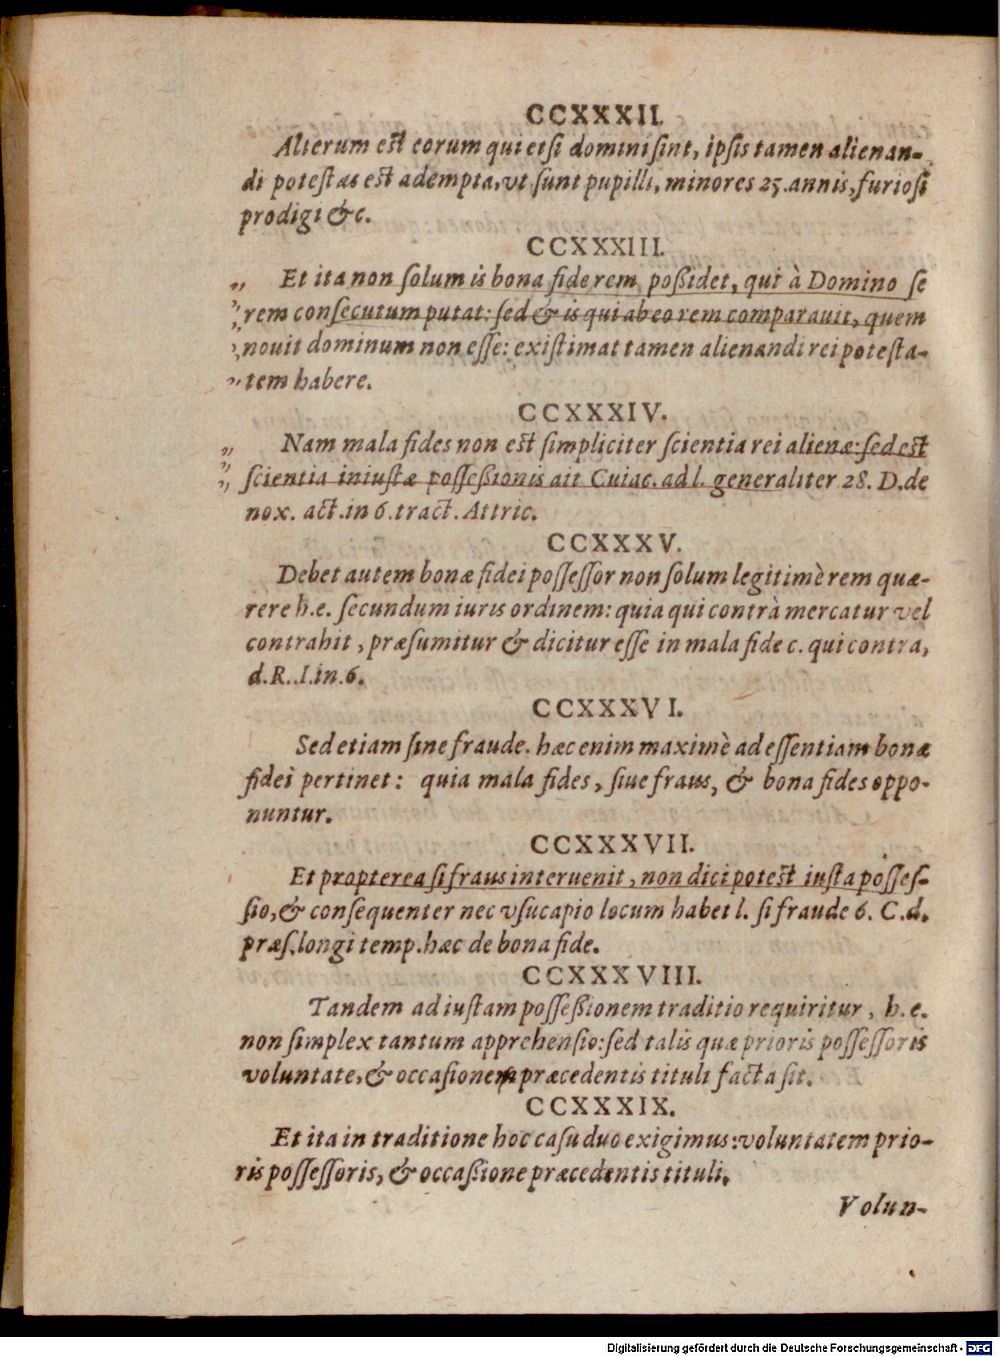 CCXXXII.
Alterum est eorum qui etsi domini sint, ipsis tamen alienan-
di potestas est adempta, vt sunt pupilli, minores 25. annis, furiosi
prodigi &c.
CCXXXIII.
„ Et ita non solum is bona fide rem possidet, qui à Domino se
„ rem consecutum putat: sed & is qui ab eo rem comparauit, quem
„ nouit dominum non esse: existimat tamen alienandi rei potesta-
„ tem habere.
CCXXXIV.
„ Nam mala fides non est simpliciter scientia rei alienæ: sed est
„ scientia iniustæ possessionis ait Cuiac. ad l. generaliter 28. D. de
nox. act. in 6. tract. Attric.
CCXXXV.
Debet autem bonæ fidei possessor non solum legitimè rem quæ-
rere h.e. secundum iuris ordinem: quia qui contrà mercatur vel
contrahit, præsumitur & dicitur esse in mala fide c. qui contra,
d. R. I. in. 6.
CCXXXVI.
Sed etiam sine fraude. hæc enim maximè ad essentiam bonæ
fidei pertinet: quia mala fides, siue fraus, & bona fides oppo-
nuntur.
CCXXXVII.
Et propterea si fraus interuenit, non dici potest iusta posses-
sio, & consequenter nec vsucapio locum habet l. si fraude 6. C. d.
præs. longi temp. hæc de bona fide.
CCXXXVIII.
Tandem ad iustam possessionem traditio requiritur, h.e.
non simplex tantum apprehensio: sed talis quæ prioris possessoris
voluntate, & occasionem præcedentis tituli facta sit.
CCXXXIX.
Et ita in traditione hoc casu duo exigimus: voluntatem prio-
ris possessoris, & occassione præcedentis tituli.
Volun-
Digitalisierung gefördert durch die Deutsche Forschungsgemeinschaft - DFG